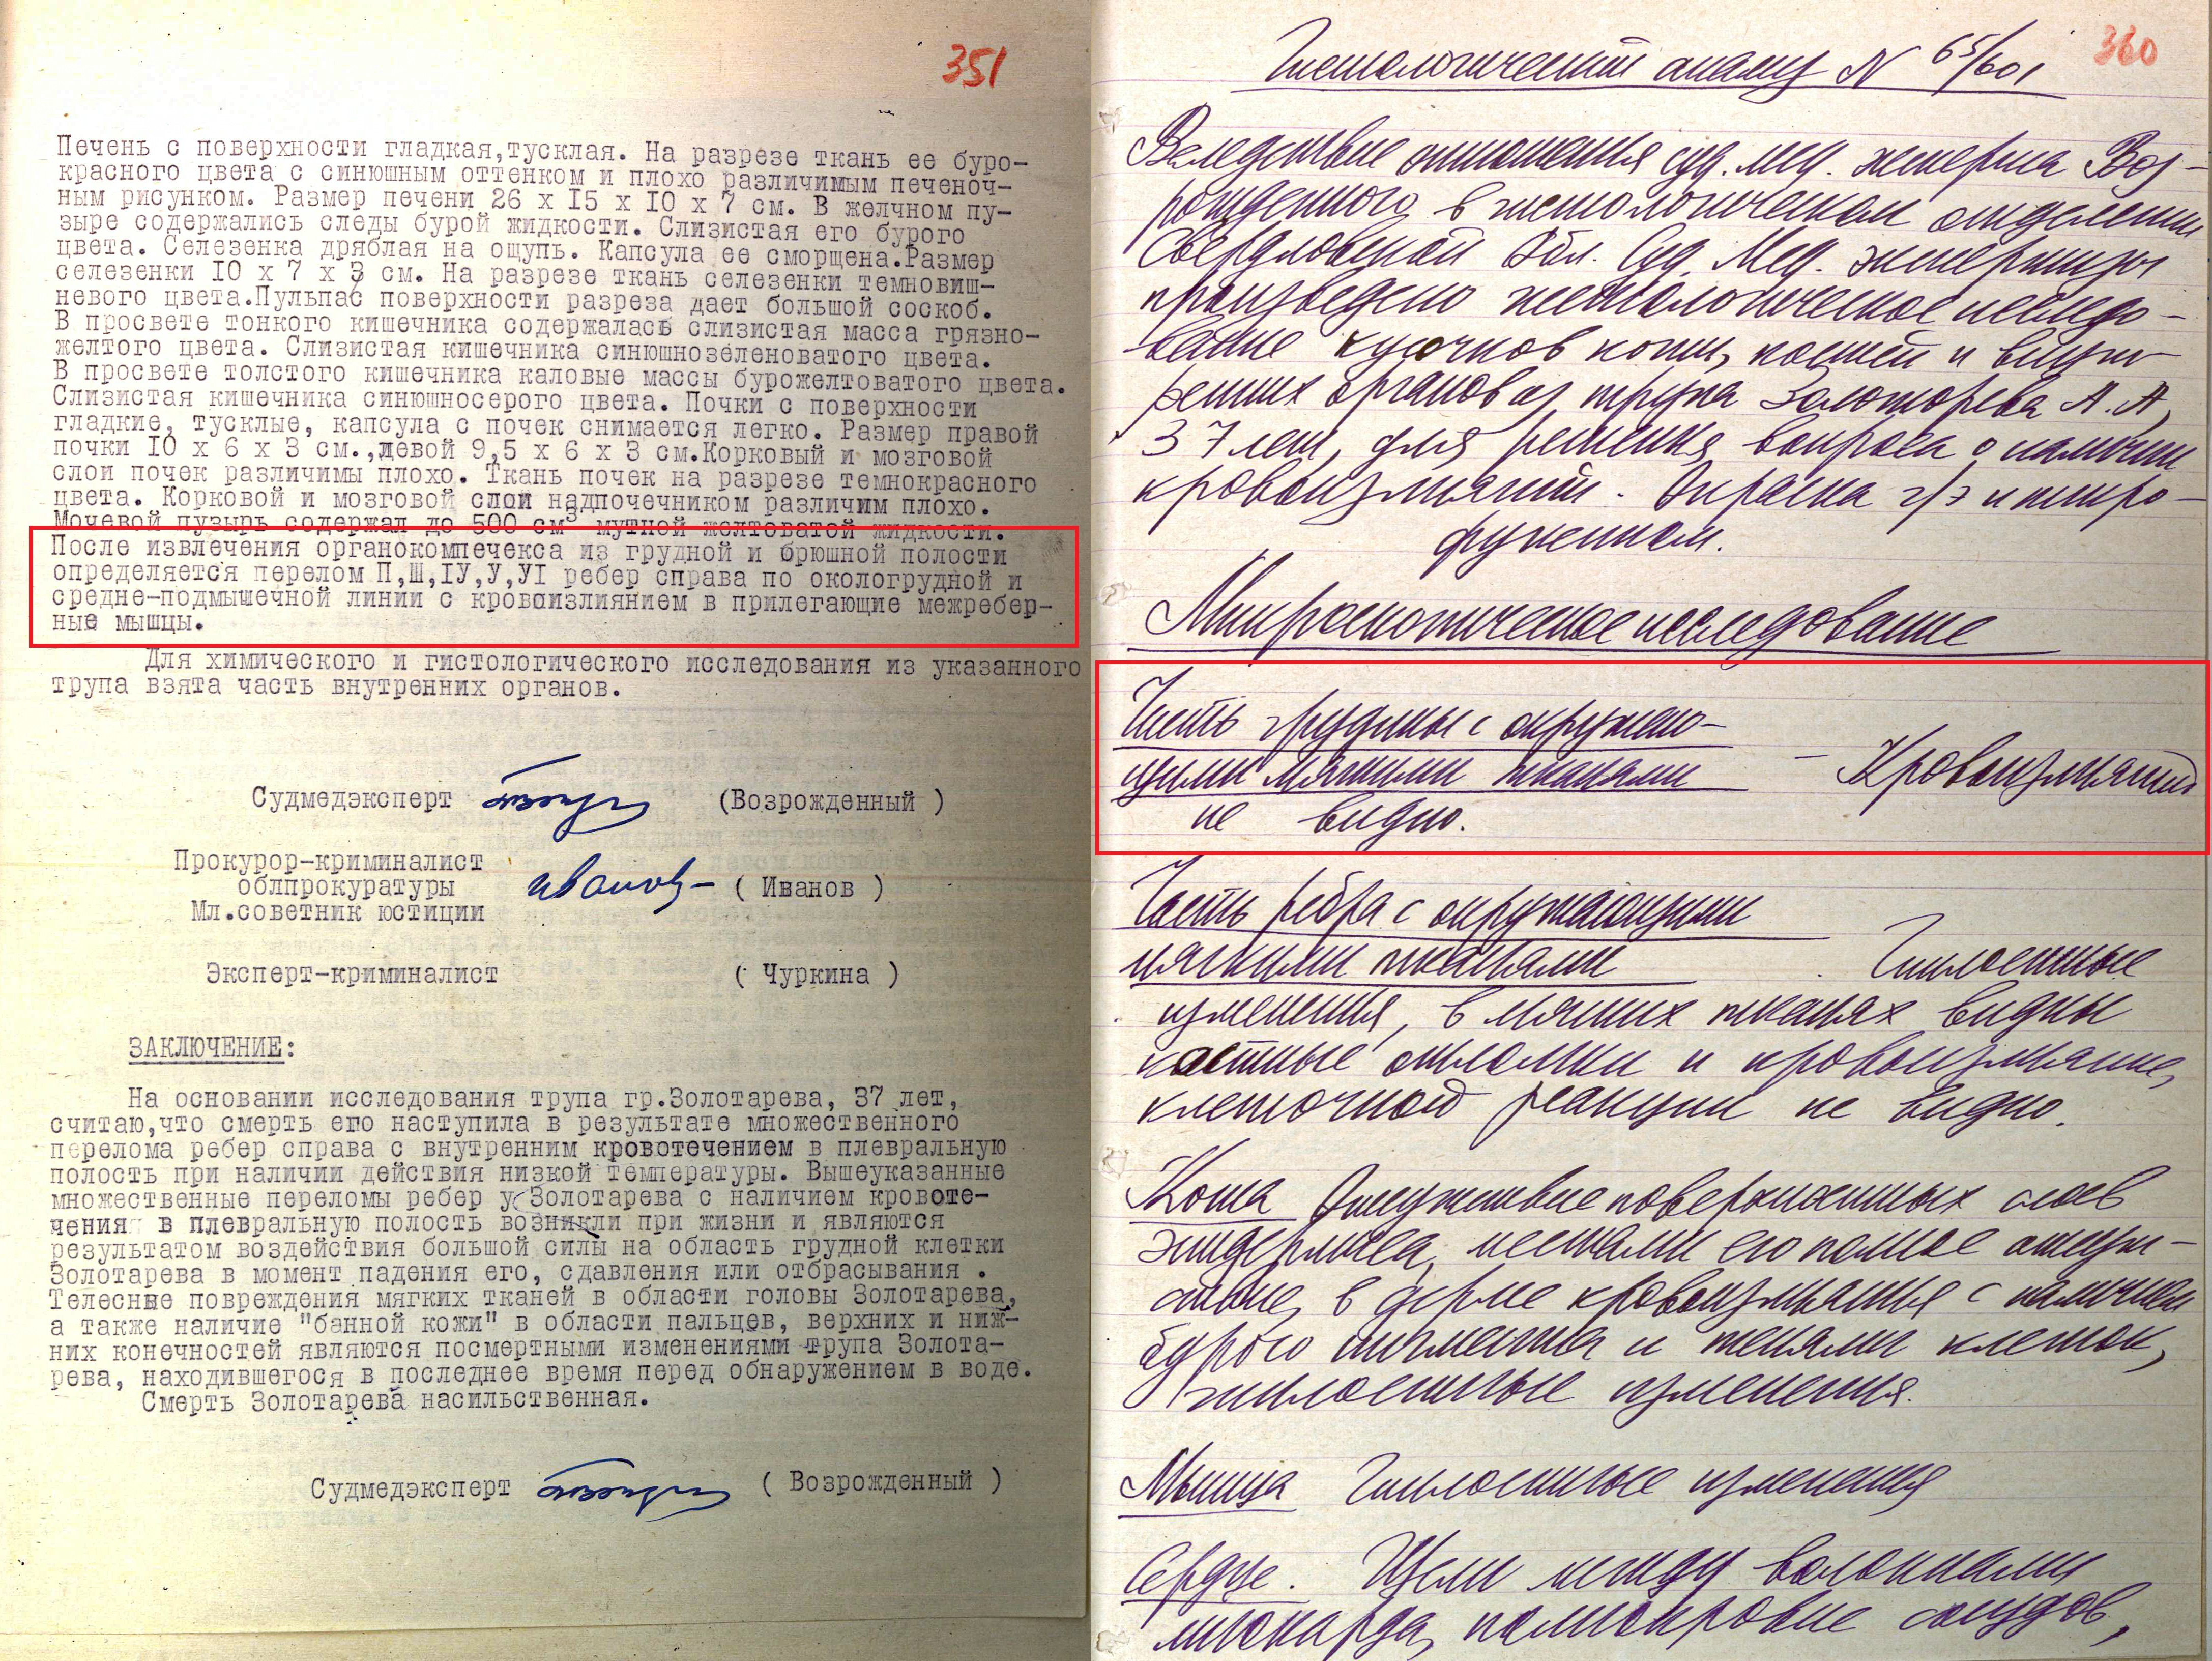 351
Печень с поверхности гладкая,тусклая. На разрезе ткань ее буро-
красного цвета с синюшным оттенком и плохо различимым печеноч-
ным рисунком. Размер печени 26 х 15 х 10 х 7 см. В желчном пу-
зыре содержались следы бурой жидкости. Слизистая его бурого
цвета. Селезенка дряблая на ощупь. Капсула ее сморщена.Размер
селезенки 10 х 7 х 3 см. На разрезе ткань селезенки темновиш-
невого цвета.Пульпас поверхности разреза дает большой соскоб.
В просвете тонкого кишечника содержалась слизистая масса грязно-
желтого цвета. Слизистая кишечника синюшнозеленоватого цвета.
В просвете толстого кишечника каловые массы бурожелтоватого цвета.
Слизистая кишечника синюшносерого цвета. Почки с поверхности
гладкие, тусклые, капсула с почек снимается легко. Размер правой
почки 10 х 6 х 3 см.,левой 9,5 х 6 х 3 см.Корковый и мозговой
слои почек различимы плохо. Ткань почек на разрезе темнокрасного
цвета. Корковой и мозговой слои надпочечником различим плохо.
Мочевой пузырь содержал до 500 см³ мутной желтоватой жидкости.
После извлечения органокомпечекса из грудной и брюшной полости
определяется перелом П,Ш,IУ,У,УI ребер справа по окологрудной и
средне-подмышечной линии с кровоизлиянием в прилегающие межребер-
ные мышцы.
Для химического и гистологического исследования из указанного
трупа взята часть внутренних органов.
Судмедэксперт (Возрожденный )
Прокурор-криминалист
облпрокуратуры Иванов ( Иванов )
Мл.советник юстиции
Эксперт-криминалист ( Чуркина )
ЗАКЛЮЧЕНИЕ:
На основании исследования трупа гр.Золотарева, 37 лет,
считаю,что смерть его наступила в результате множественного
перелома ребер справа с внутренним кровотечением в плевральную
полость при наличии действия низкой температуры. Вышеуказанные
множественные переломы ребер у Золотарева с наличием кровоте-
чения в плевральную полость возникли при жизни и являются
результатом воздействия большой силы на область грудной клетки
Золотарева в момент падения его, сдавления или отбрасывания .
Телесные повреждения мягких тканей в области головы Золотарева,
а также наличие "банной кожи" в области пальцев, верхних и ниж-
них конечностей являются посмертными изменениями трупа Золота-
рева, находившегося в последнее время перед обнаружением в воде.
Смерть Золотарева насильственная.
Судмедэксперт ( Возрожденный )
360
Гистологический анализ N 65/601
Вследствие отношения суд. мед. эксперта Воз-
рожденного в гистологическом отделении
Свердловской Обл. Суд. Мед. экспертизы
произведено гистологическое исследо-
вание кусочков кожи, костей и внут-
ренних органов из трупа Золоторева А. А,
37 лет, для решения вопроса о наличии
кровоизлияний. Окраска г/э и пикро-
фуксином.
Микроскопическое исследование
Часть грудины с окружаю-
щими мягкими тканями – Кровоизлияний
не видно.
Часть ребра с окружающими
мягкими тканями. Гнилостные
изменения, в мягких тканях видны
костные опилолки и кровоизлияние,
клеточной реакции не видно.
Кожа Отсутствие поверхностных слоев
эпидермиса, местами его полное отсут-
ствие, в дерме кровоизлияния с наличием
бурого пигмента и тенями клеток,
гнилостные изменения.
Мышца Гнилостные изменения
Сердце. Щели между волокнами
миокарда, полнокровие сосудов,